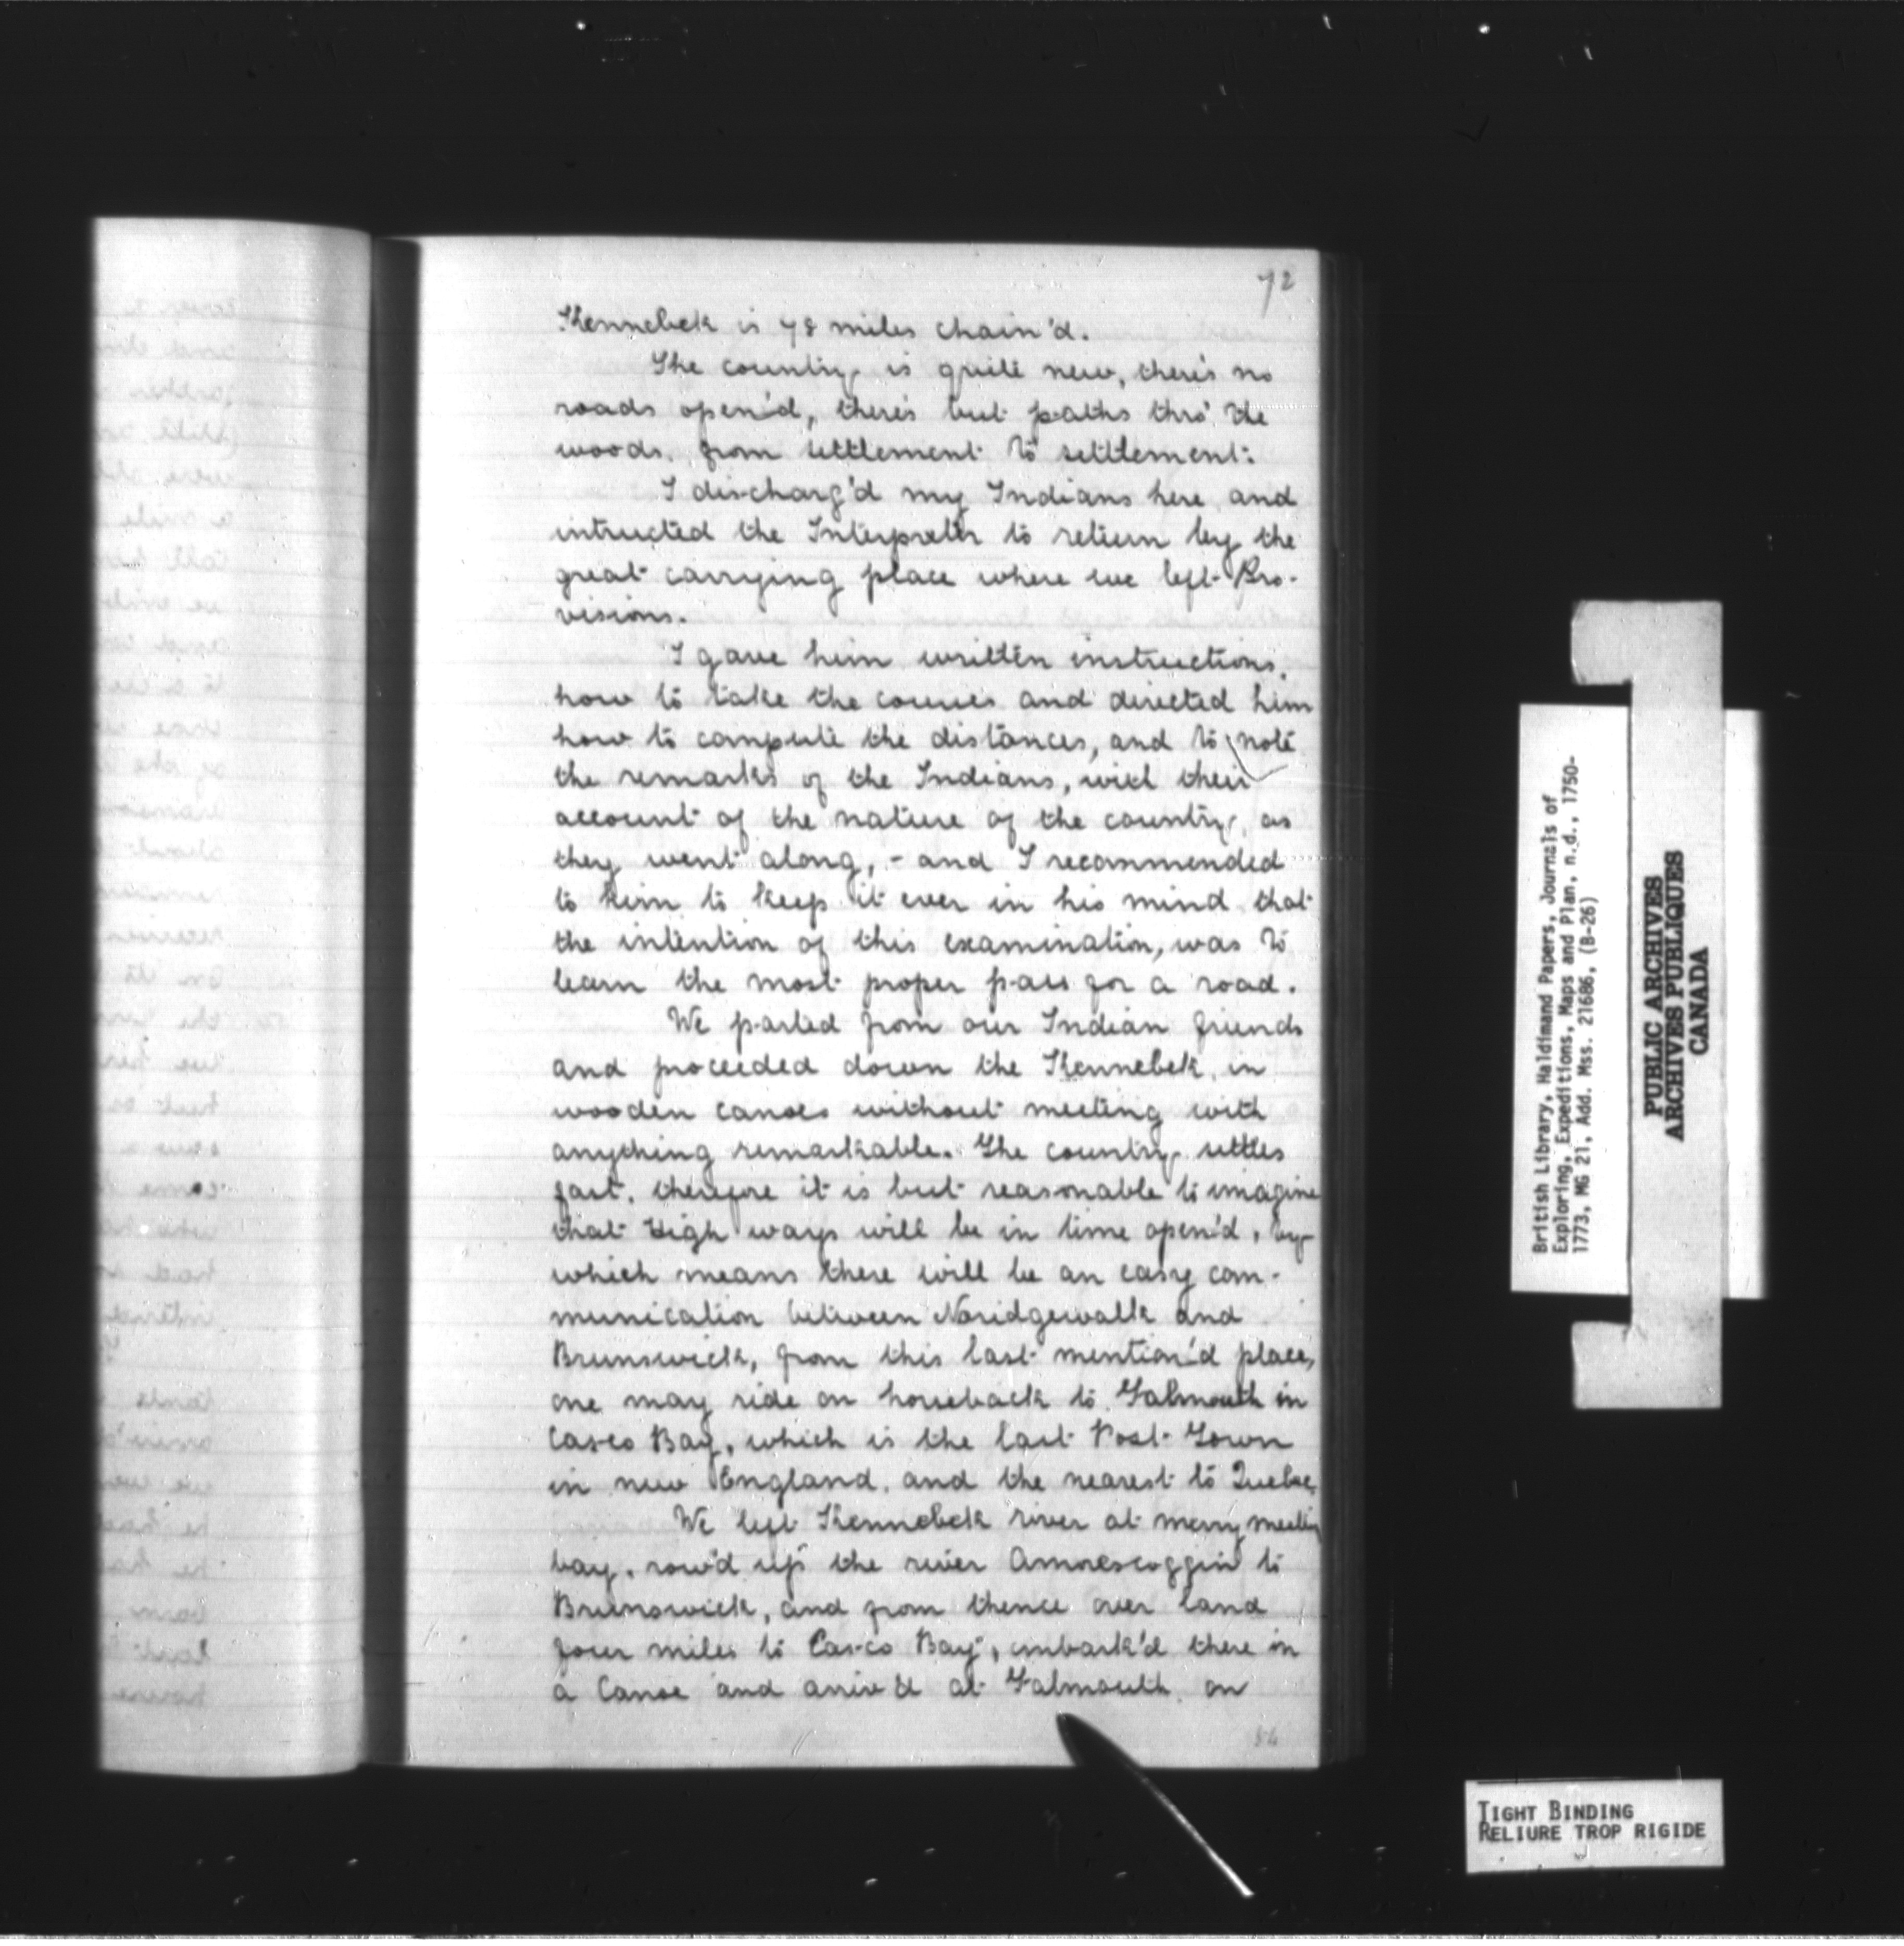 72
Kennebek is 78 miles chain'd.
The country is quite new, there's no
roads open'd, there's but paths thro' the
woods, from settlement to settlement.
I discharg'd my Indians here and
intructed the Interpreter to return by the
great carrying place where we left Pro-
visions.
I gave him written instructions,
how to take the courses and directed him
how to compute the distances, and to note
the remarks of the Indians, with their
account of the nature of the country, as
they went along, - and I recommended
to him to keep it ever in his mind that
the intention of this examination, was to
learn the most proper pass for a road.
We parted from our Indian friends
and proceeded down the Kennebek, in
wooden canoes without meeting with
anything remarkable. The country settles
fast, therefore it is but reasonable to imagine
that High ways will be in time open'd, by
which means there will be an easy com-
munication between Noridgewalk and
Brunswick, from this last mention'd place,
one may ride on horseback to Falmouth in
Casco Bay, which is the last Post Town
in new England, and the nearest to Quebec,
We left Kennebek river at merry meeting
bay, row'd up the river Amorescoggin to
Brunswick, and from thence over land
four miles to Casco Bay, embark'd there in
a Canoe and arriv'd at Falmouth on
54
British Library, Haldimand Papers, Journals of
Exploring, Expeditions, Maps and Plan, n.d., 1750-
1773, MG 21, Add. Mss. 21686, (B-26)
PUBLIC ARCHIVES
ARCHIVES PUBLIQUES
CANADA
TIGHT BINDING
RELIURE TROP RIGIDE